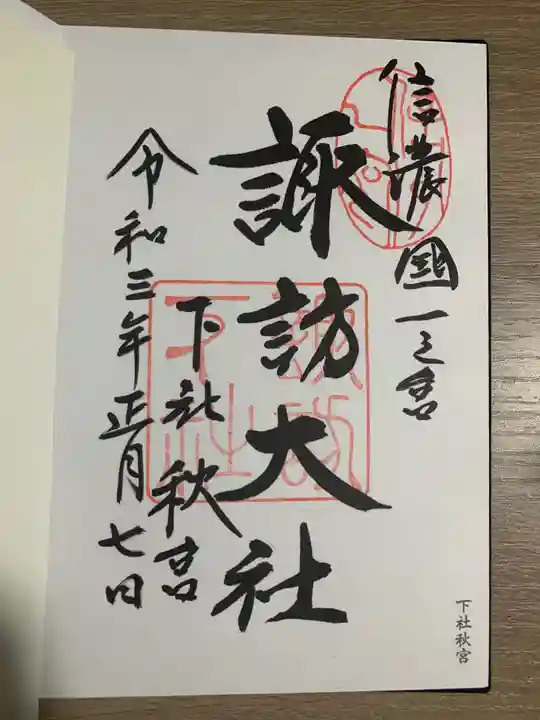 信濃國一之宮
諏訪大社
下社秋宮
令和三年正月七日
下社秋宮